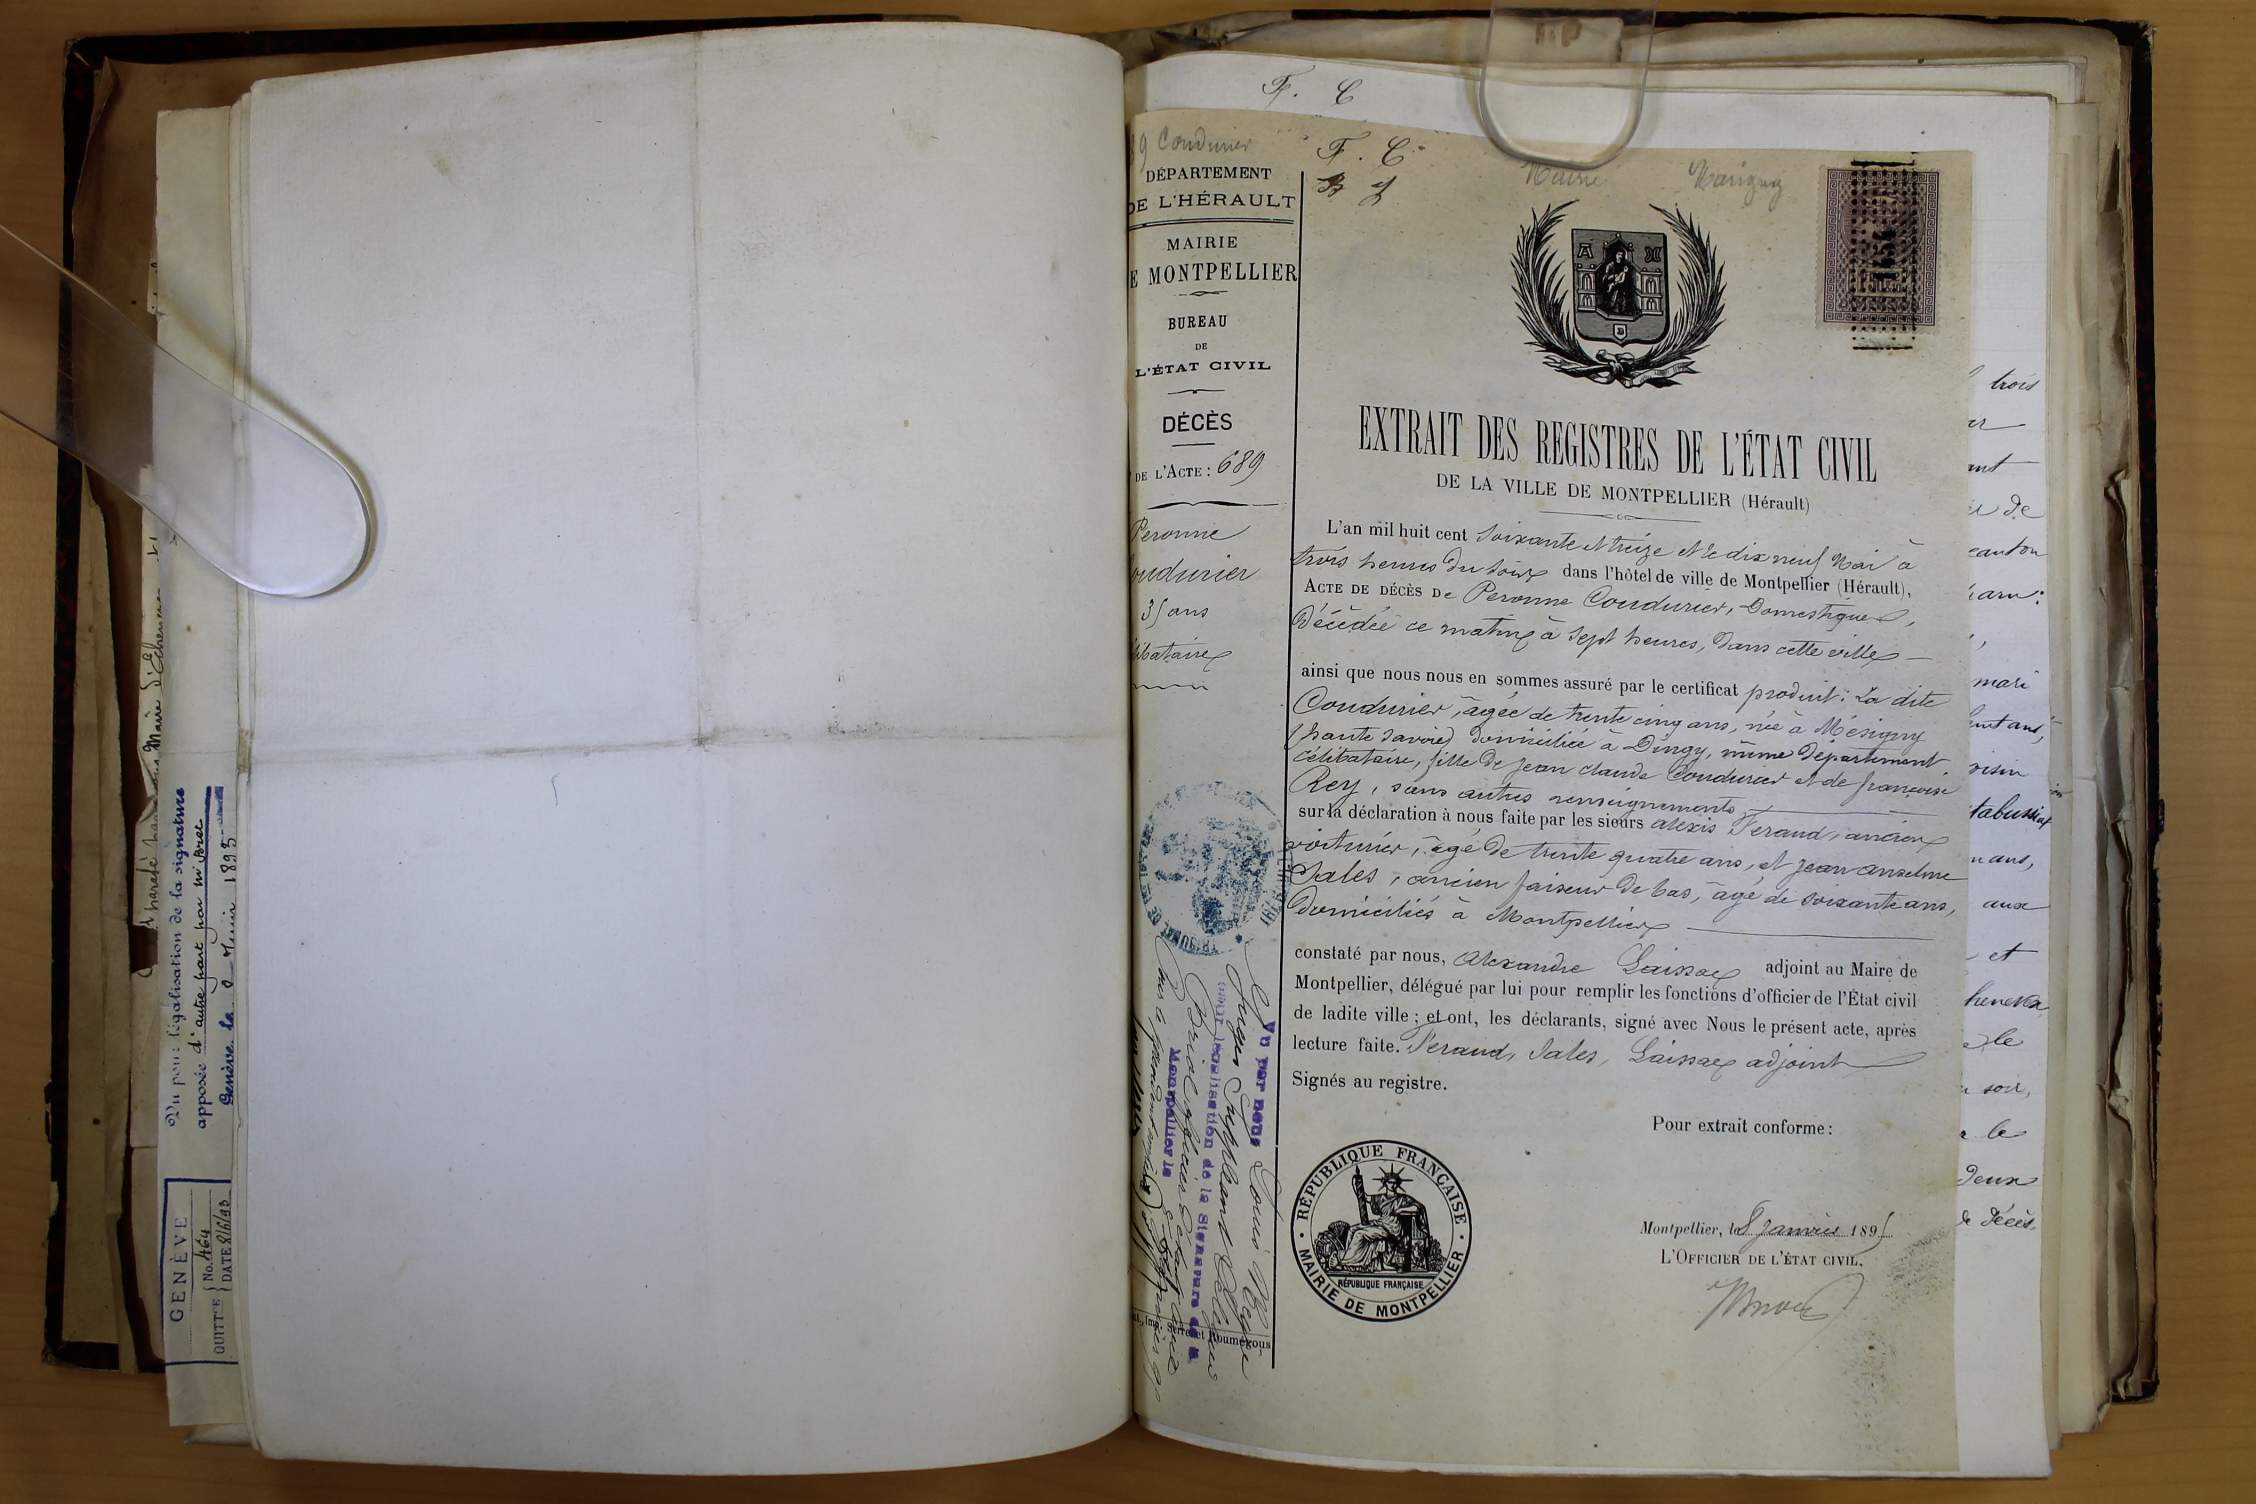 Vu pour légalisation de la signature
apposée d'autre part par
Genève, le 9 Juin 1893
GENÈVE
QUITTCE No. 464
DATE 8/6/93
Maire d'
F. C
Condurier
DÉPARTEMENT
DE L'HÉRAULT
MAIRIE
E MONTPELLIER
BUREAU
DE
L'ÉTAT CIVIL
DÉCÈS
DE L'ACTE : 689
Peronne
oudurier
35 ans
libataire
F. C
Mairie Marigny
1654
EXTRAIT DES REGISTRES DE L'ÉTAT CIVIL
DE LA VILLE DE MONTPELLIER (Hérault)
L'an mil huit cent soixante et treize et le dix neuf Mai à
trois heures du soir dans l'hôtel de ville de Montpellier (Hérault),
ACTE DE DÉCÈS De Peronne Coudurier, Domestique,
Décédée ce matin à sept heures, dans cette ville
ainsi que nous nous en sommes assuré par le certificat produit. La dite
Coudurier, âgée de trente cinq ans, née à Mésigny
(haute Savoie) domiciliée à Dingy, même département
célibataire, fille de Jean Claude Coudurier et de françoise
Rey, sans autres renseignements
sur la déclaration à nous faite par les sieurs Alexis Feraud, ancien
voiturier, âgé de trente quatre ans, et Jean Anselme
Sales, ancien faiseur de bas, âgé de soixante ans,
Domiciliés à Montpellier
constaté par nous, Alexandre Laissac adjoint au Maire de
Montpellier, délégué par lui pour remplir les fonctions d'officier de l'État civil
de ladite ville ; et ont, les déclarants, signé avec Nous le présent acte, après
lecture faite. Feraud, Sales, Laissac adjoint
Signés au registre.
Pour extrait conforme :
Montpellier, le 8 janvier 1895
L'OFFICIER DE L'ÉTAT CIVIL,
RÉPUBLIQUE FRANÇAISE
RÉPUBLIQUE FRANÇAISE
MAIRIE DE MONTPELLIER
Vu par nous Louis
Juge Suppléant
pour légalisation de la Signature de M
Montpellier le
Imp. Serre et Roumégous
trois
ant
de
canton
mari
voisin
ans,
aux
et
le
soir,
le
deux
de décès